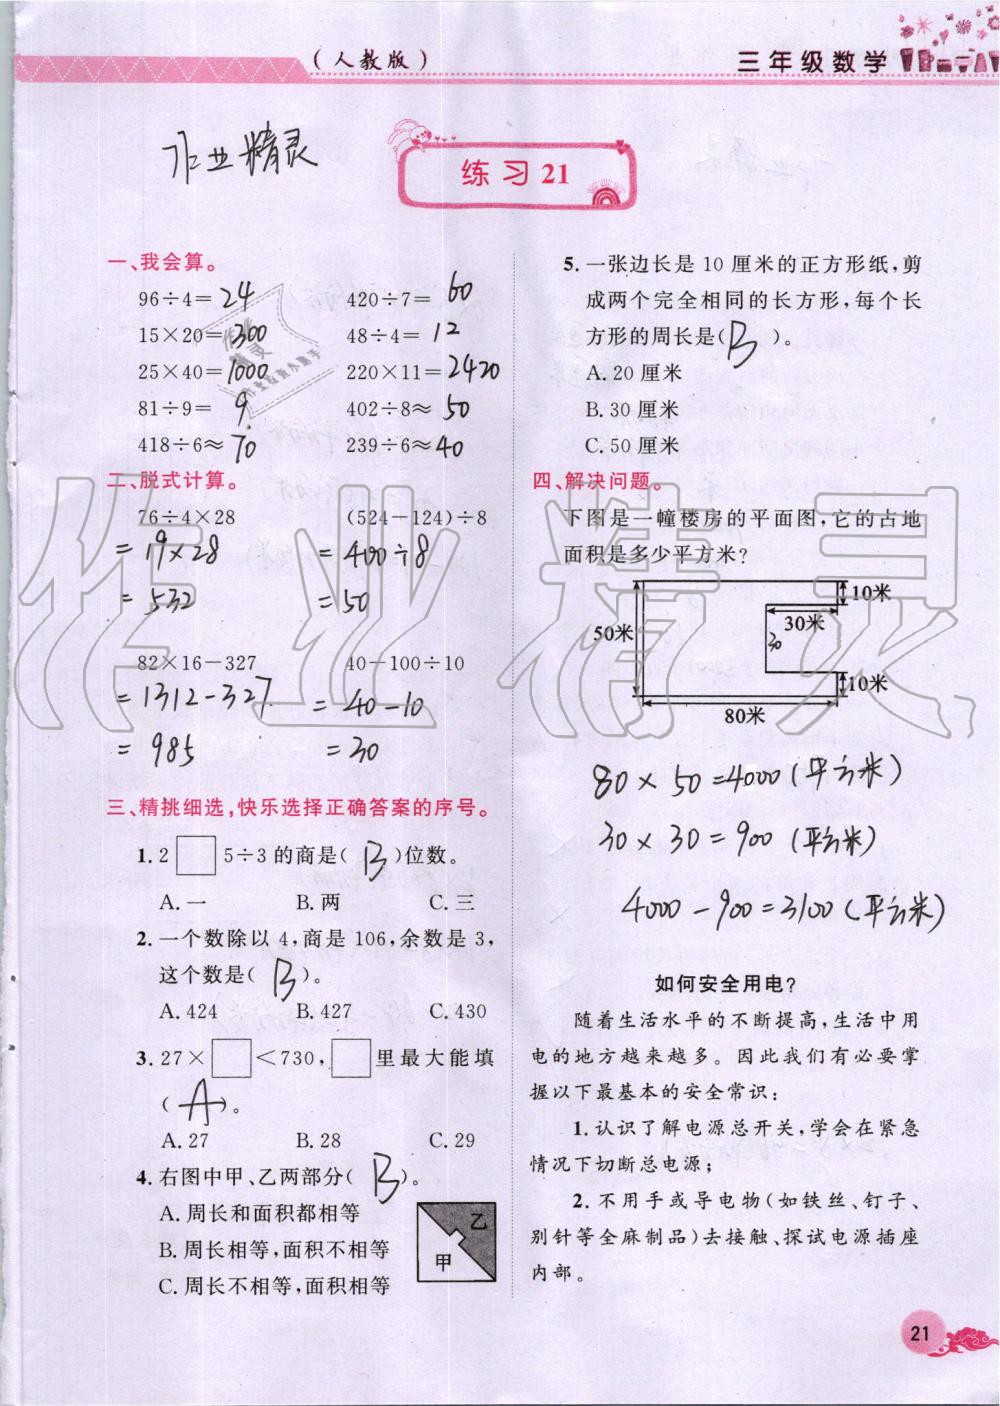 (人教版)
三年级数学
作业精灵
练习21
一、我会算。
96÷4=24 420÷7=60
15×20=300 48÷4=12
25×40=1000 220×11=2420
81÷9=9 402÷8≈50
418÷6≈70 239÷6≈40
二、脱式计算。
76÷4×28 (524-124)÷8
=19×28 =400÷8
=532 =50
82×16-327 40-100÷10
=1312-327 =40-10
=985 =30
三、精挑细选,快乐选择正确答案的序号。
1. 2□5÷3的商是(B)位数。
A.一 B.两 C.三
2. 一个数除以4,商是106,余数是3,
这个数是(B)。
A.424 B.427 C.430
3. 27×□<730,□里最大能填
(A)。
A.27 B.28 C.29
4. 右图中甲、乙两部分(B)。
A.周长和面积都相等
B.周长相等,面积不相等
C.周长不相等,面积相等
乙
甲
5. 一张边长是10厘米的正方形纸,剪
成两个完全相同的长方形,每个长
方形的周长是(B)。
A.20厘米
B.30厘米
C.50厘米
四、解决问题。
下图是一幢楼房的平面图,它的占地
面积是多少平方米?
10米
30米
50米
30
10米
80米
80×50=4000(平方米)
30×30=900(平方米)
4000-900=3100(平方米)
如何安全用电?
随着生活水平的不断提高,生活中用
电的地方越来越多。因此我们有必要掌
握以下最基本的安全常识:
1.认识了解电源总开关,学会在紧急
情况下切断总电源;
2.不用手或导电物(如铁丝、钉子、
别针等全麻制品)去接触、探试电源插座
内部。
21
作业精灵